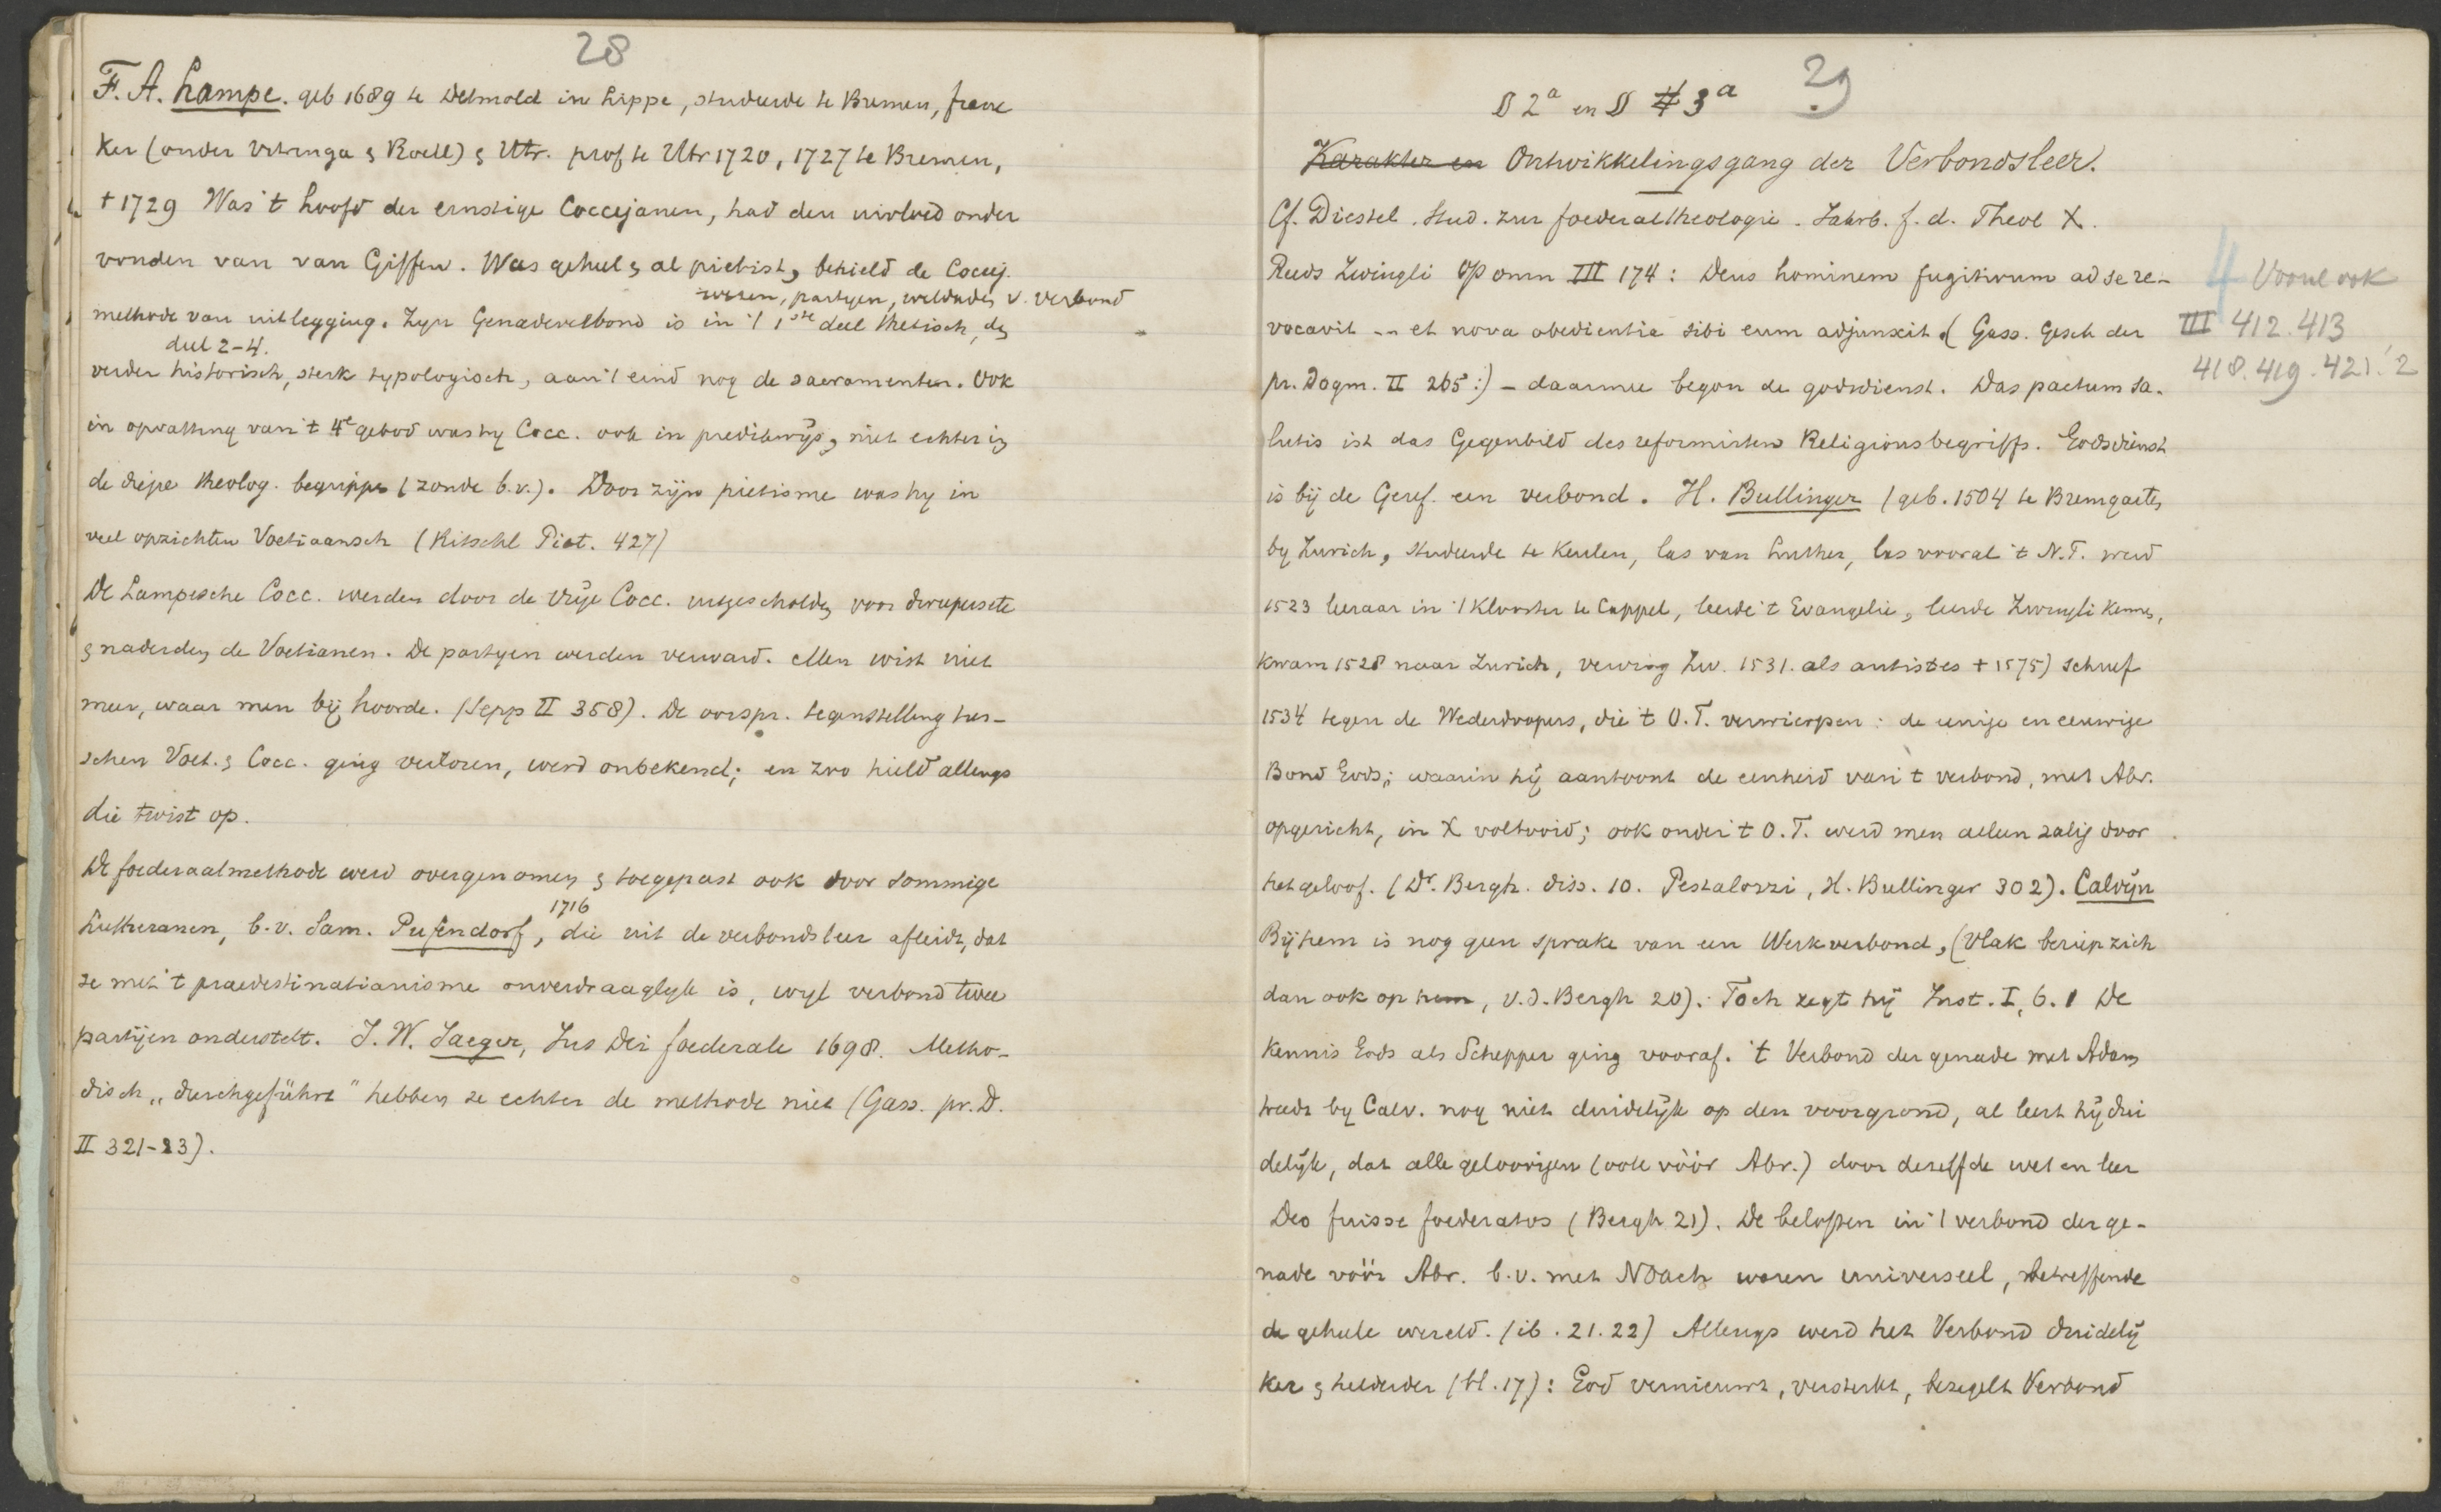 28
F. A. Lampe. geb 1689 te Detmold in Lippe, studeerde te Bremen, frane
ker (onder Vitringa & Roell) & Utr. prof te Utr 1720, 1727 te Bremen,
† 1729 Was 't hoofd der ernstige Coccejanen, had den invloed onder
vonden van van Giffen. Was geheel & al pietist, behield de Coccej.
wezen, partyen, weldaden v. verbond
methode van uitlegging. Zyn Genadeverbond is in 't 1ste deel thetisch, de
deel 2-4.
verder historisch, sterk typologisch, aan 't eind nog de sacramenten. Ook
in opvatting van 't 4e gebod was hy Cocc. ook in predikwijs, niet echter in
de diepe theolog. begrippen (zonde b.v.). Door zijn pietisme was hy in
veel opzichten Voetiaansch (Ritschl Piet. 427)
De Lampesche Cocc. werden door de vrije Cocc. uitgescholden voor
& naderden de Voetianen. De partyen werden verward. Men wist niet
meer, waar men bij hoorde. (Sepp II 358). De oorspr. tegenstelling tus-
schen Voet. & Cocc. ging verloren, werd onbekend; en zoo hield allengs
die twist op.
De foederaalmethode werd overgenomen & toegepast ook door sommige
1716
Lutheranen, b.v. Sam. Pufendorf, die uit de verbondsleer afleidt, dat
ze met 't praedestinatianisme onverdraaglyk is, wyl verbond twee
partijen onderstelt. J. W. Jaeger, Jus Dei foederale 1698. Metho-
disch „durchgeführt" hebben ze echter de methode niet (Gass. pr. D.
II 321-23).
29
§ 2a en § # 3a
Karakter en Ontwikkelingsgang der Verbondsleer.
Cf. Diestel. Stud. zur foederaltheologie. Jahrb. f. d. Theol X.
Reeds Zwingli Op omn III 174: Deus hominem fugitivum ad se re-
vocavit -- et nova obedientia sibi eum adjunxit. (Gass. Gesch der
pr. Dogm. II 265:) - daarmee begon de godsdienst. Das pactum sa-
lutis ist das Gegenbild des reformirten Religionsbegriffs. Godsdienst
is bij de Geref. een verbond. H. Bullinger (geb. 1504 te Bremgarten
by Zurich, studeerde te Keulen, las van Luther, las vooral 't N.T. werd
1523 leeraar in 't klooster te Cappel, leerde 't Evangelie, leerde Zwingli kennen,
kwam 1528 naar Zurich, verving Zw. 1531. als antistes † 1575) schreef
1534 tegen de Wederdoopers, die 't O.T. verwierpen: de eenige en eeuwige
Bond Gods; waarin hij aantoont de eenheid van 't verbond, met Abr.
opgericht, in X voltooid; ook onder 't O.T. werd men alleen zalig door
het geloof. (Dr. Bergh. diss. 10. Pestalozzi, H. Bullinger 302). Calvijn
Bij hem is nog geen sprake van een Werkverbond, (Vlak beriep zich
dan ook op hem, v.d. Bergh 20). Toch zegt hij Inst. I, 6. 1 De
kennis Gods als Schepper ging vooraf. 't Verbond der genade met Adam
treedt by Calv. nog niet duidelijk op den voorgrond, al leert hij dui
delijk, dat alle geloovigen (ook vóór Abr.) door dezelfde wet en leer
Deo fuisse foederatos (Bergh 21). De beloften in 't verbond der ge-
nade vóór Abr. b.v. met Noach waren universeel, betreffende
de geheele wereld. (ib. 21.22) Allengs werd het Verbond duidelij
ker & helderder (bl. 17): God vernieuwt, versterkt, bezegelt Verbond
4 Vooral ook
III 412. 413
418. 419. 421. 2